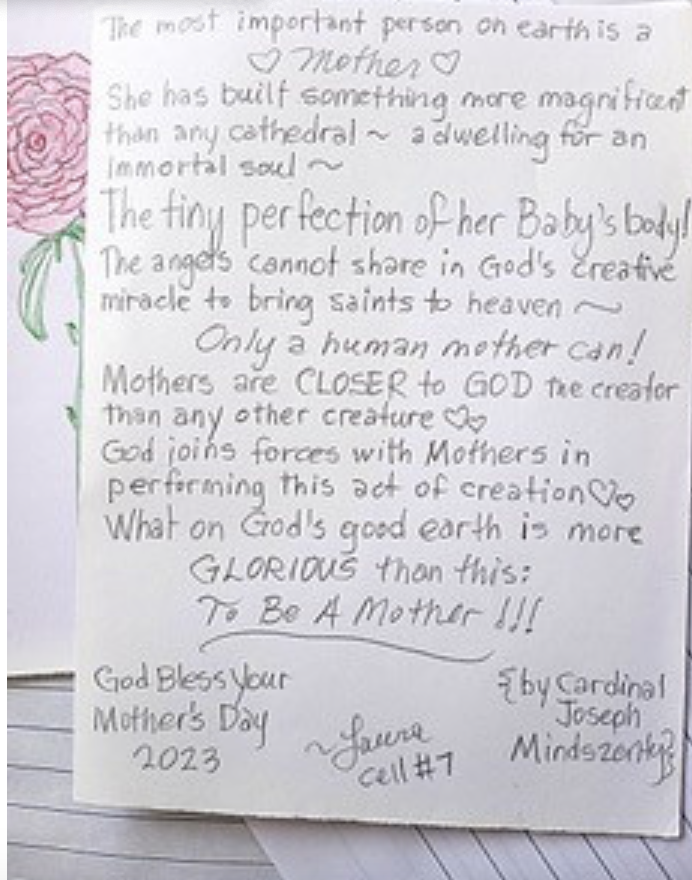 The most important person on earth is a
♡ Mother ♡
She has built something more magnificent
than any cathedral ~ a dwelling for an
immortal soul ~
The tiny perfection of her Baby's body!
The angels cannot share in God's creative
miracle to bring saints to heaven ~
Only a human mother can!
Mothers are CLOSER to GOD the creator
than any other creature ♡♡
God joins forces with Mothers in
performing this act of creation ♡♡
What on God's good earth is more
GLORIOUS than this:
To Be A Mother !!!
God Bless Your
Mother's Day
2023
~Laura
cell #7
{by Cardinal
Joseph
Mindszenty}